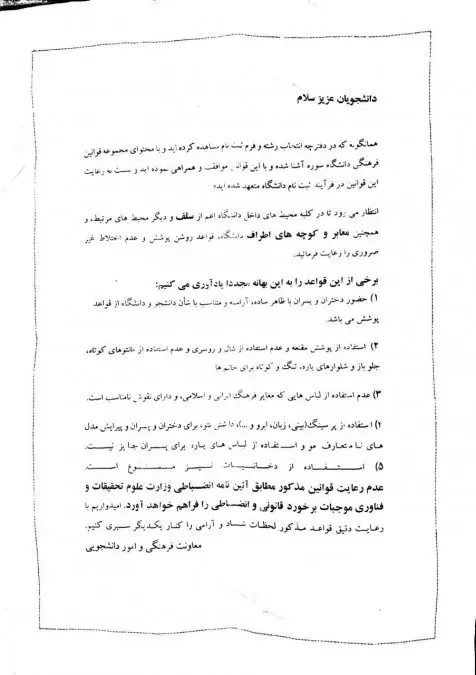 دانشجویان عزیز سلام
همانگونه که در دفترچه انتخاب رشته و فرم ثبت نام مشاهده کرده اید و با محتوای مجموعه قوانین
فرهنگی دانشگاه سوره آشنا شده و با این قوانین موافقت و همراهی نموده اید و نسبت به رعایت
این قوانین در فرآیند ثبت نام دانشگاه متعهد شده اید؛
انتظار می رود تا در کلیه محیط های داخل دانشگاه اعم از سلف و دیگر محیط های مرتبط، و
همچنین معابر و کوچه های اطراف دانشگاه، قواعد روشن پوشش و عدم اختلاط غیر
ضروری را رعایت فرمائید.
برخی از این قواعد را به این بهانه مجددا یادآوری می کنیم:
۱) حضور دختران و پسران با ظاهر ساده، آراسته و متناسب با شأن دانشجو و دانشگاه از قواعد
پوشش می باشد.
۲) استفاده از پوشش مقنعه و عدم استفاده از شال و روسری و عدم استفاده از مانتوهای کوتاه،
جلو باز و شلوارهای پاره، تنگ و کوتاه برای خانم ها
۳) عدم استفاده از لباس هایی که مغایر فرهنگ ایرانی و اسلامی، و دارای نقوش نامناسب است.
۴) استفاده از پرسینگ(بینی، زبان، ابرو و ...)، داشتن تتو، برای دختران و پسران و پیرایش مدل
های نا متعارف مو و استفاده از لباس های پاره برای پسران جایز نیست.
۵) استفاده از دخانیات نیز ممنوع است.
عدم رعایت قوانین مذکور مطابق آئین نامه انضباطی وزارت علوم تحقیقات و
فناوری موجبات برخورد قانونی و انضباطی را فراهم خواهد آورد. امیدواریم با
رعایت دقیق قواعد مذکور لحظات شاد و آرامی را کنار یکدیگر سپری کنیم.
معاونت فرهنگی و امور دانشجویی